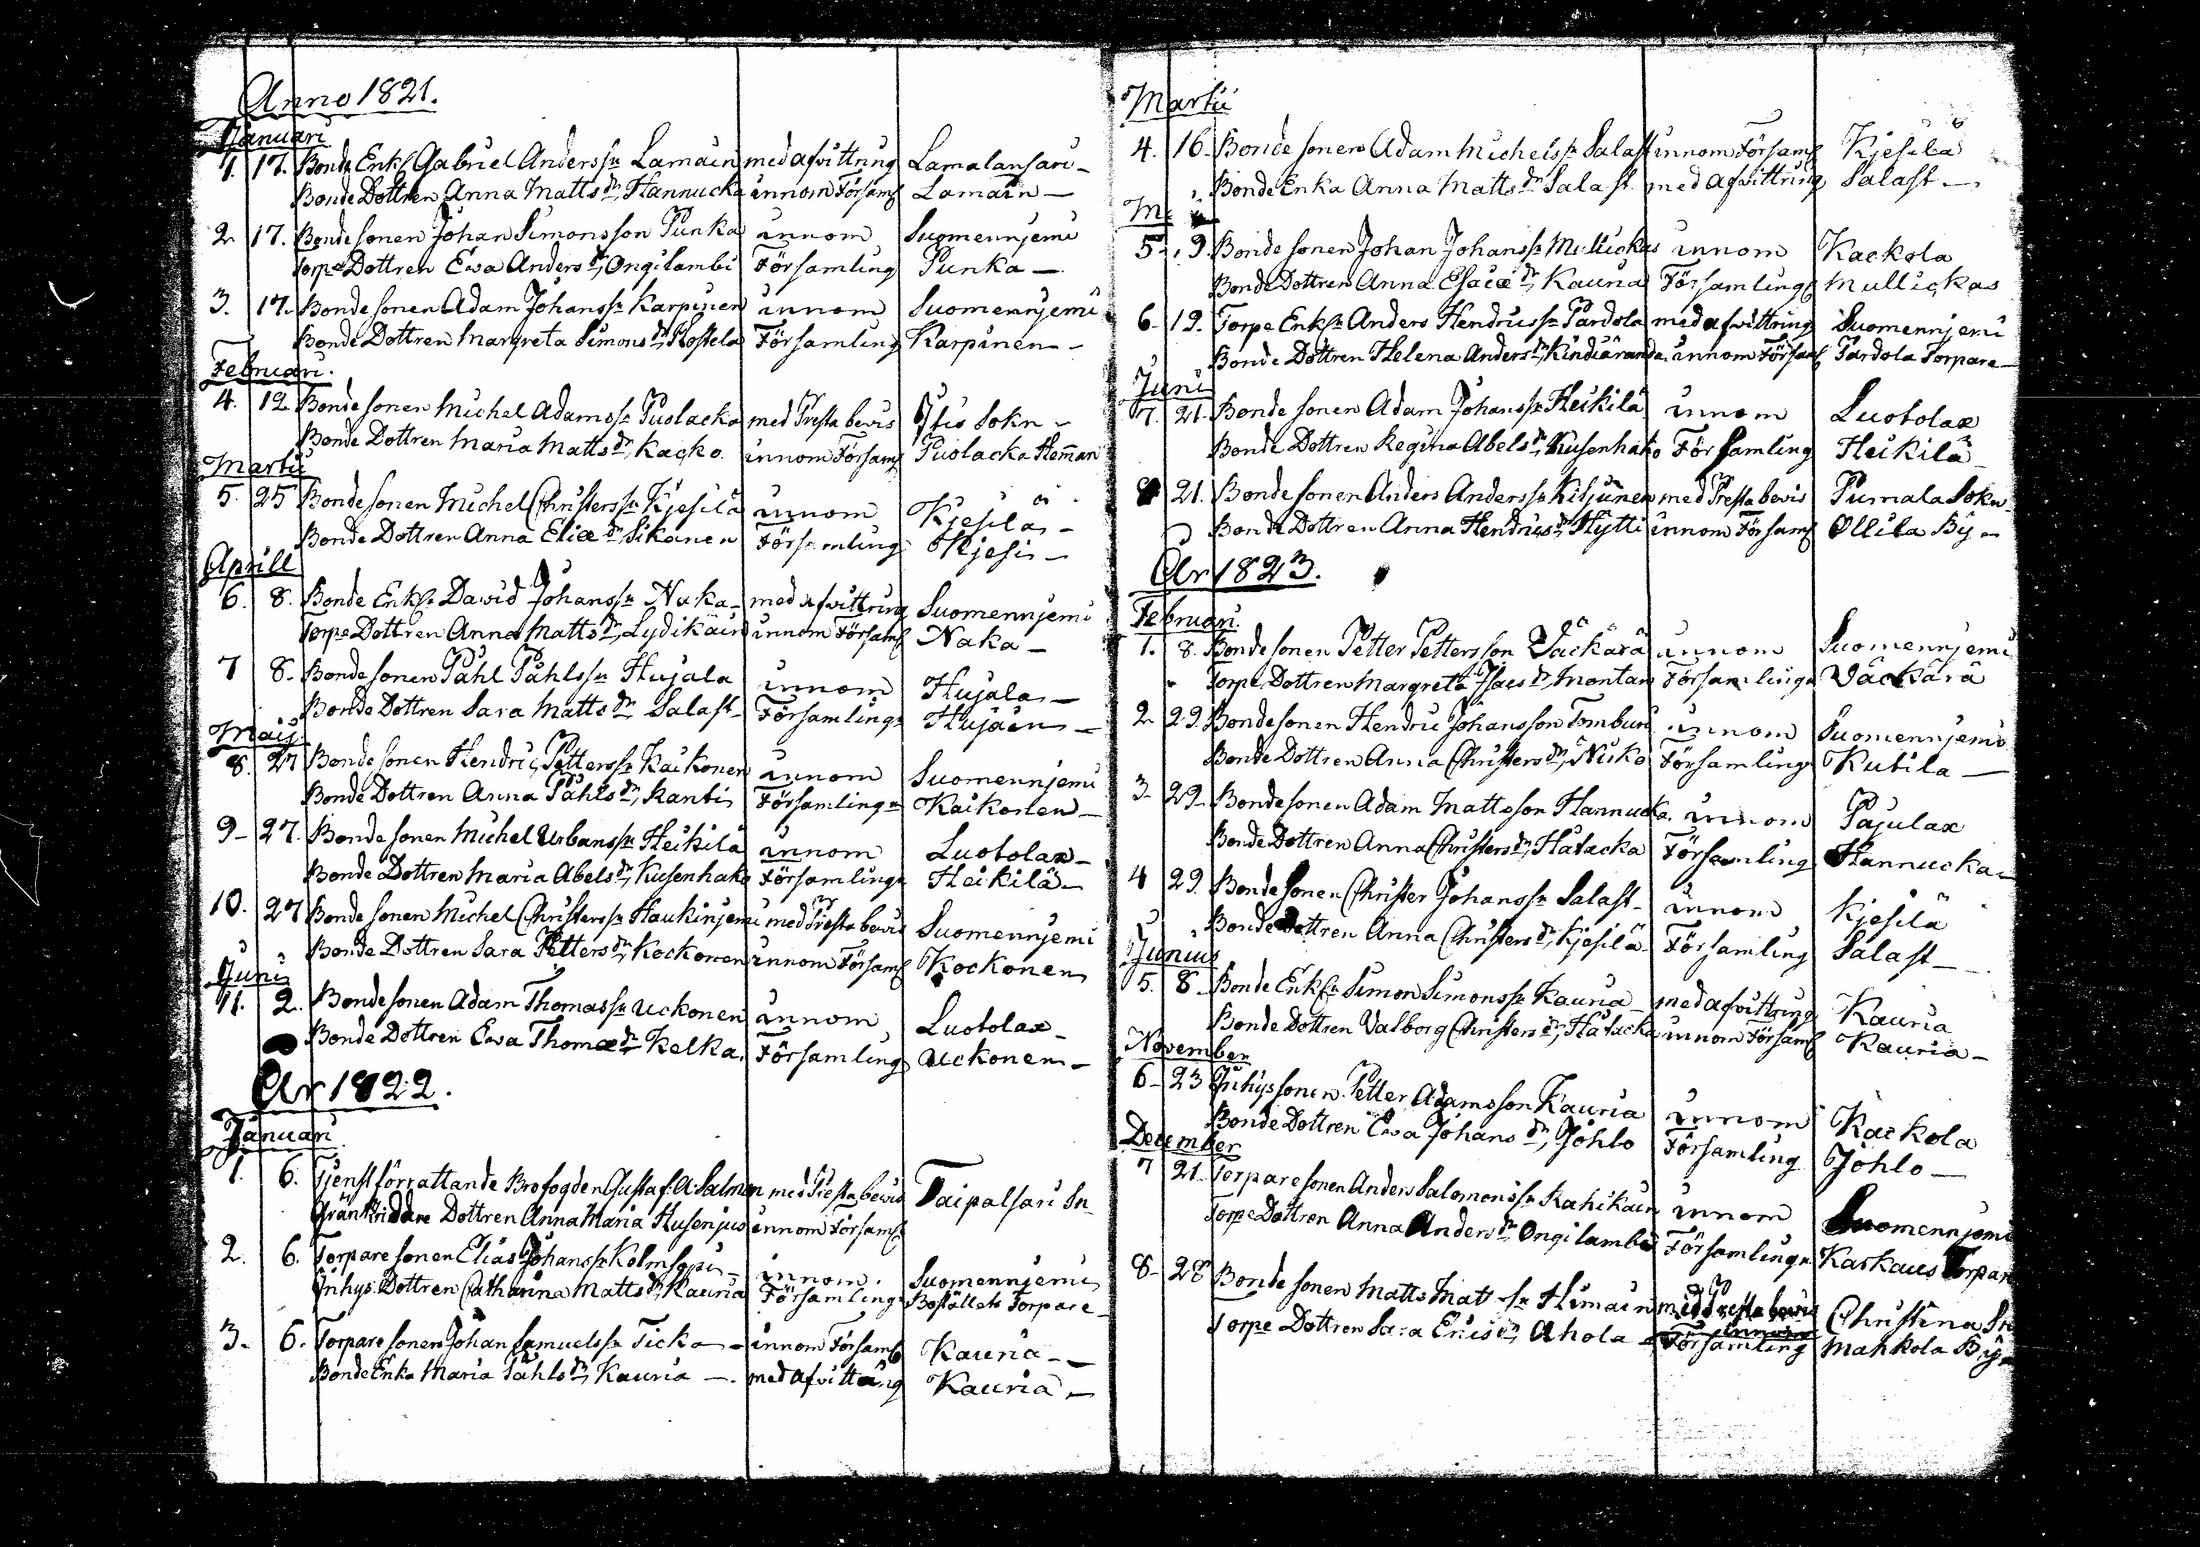 Anno 1821.
Januari
1. 17. Bonde Enkl Gabriel Anders sn Lamain med afvittring Lamalansari -
Bonde Dottren Anna Matts dr Hannucka innom Församl Lamain -
2. 17. Bonde sonen Johan Simonsson Punka innom Suomennjemi
Torpe Dottren Ewa Anders dr Ongilambi Församling Punka -
3. 17. Bonde sonen Adam Johans sn Karpinen innom Suomennjemi
Bonde Dottren Margreta Simons dr Kostela Församling Karpinen -
Februari.
4. 12 Bonde sonen Michel Adams sn Puolacka med Presta bevis Itis Sokn -
Bonde Dottren Maria Matts dr Kacko innom Församl Puolacka Heman
Martii
5. 25 Bonde sonen Michel Christers sn Kjesilä innom Kjesilä -
Bonde Dottren Anna Eliæ dr Sikanen Församling Kjesi -
Aprill
6. 8. Bonde Enkl sn David Johans sn Naka - med afvittring Suomennjemi
Torpe Dottren Anna Matts dr Lydikäin innom Församl Naka -
7 8. Bonde sonen Påhl Påhls sn Hujala innom Hujala -
Bonde Dottren Sara Matts dr Salast - Församling Hujäin -
Maij
8. 27 Bonde sonen Hendric Petters sn Kaikonen innom Suomennjemi
Bonde Dottren Anna Påhls dr Kanti Församling Kaikonen -
9 - 27. Bonde sonen Michel Urbans sn Heikilä innom Luotolax -
Bonde Dottren Maria Abels dr Kusenhako Församling Heikilä -
10. 27 Bonde sonen Michel Christers sn Haukinjemi med Presta bevis Suomennjemi
Bonde Dottren Sara Petters dr Kockonen innom Församl Kockonen
Juni
11. 2. Bonde sonen Adam Thomas sn Uckonen innom Luotolax
Bonde Dottren Ewa Thomæ dr Kelka. Församling Uckonen -
År 1822.
Januari
1. 6. Tjenst förrattande Brofogden Gustaf A: Salmen med Presta bevis Taipalsari Sn
Dottren Anna Maria Husenjus innom Församl
2. 6. Torpare sonen Elias Johans sn Kolmsopi - innom Suomennjemi
Inhys Dottren Catharina Matts dr Kauria Församling Boställets Torpare -
3 - 6. Torpare sonen Johan Samuels sn Ticka - innom Församl Kauria -
Bonde Enka Maria Påhls dr Kauria - med afvittring Kauria -
Martii
4. 16. Bonde sonen Adam Michels sn Salast innom Församl Kjesilä
Bonde Enka Anna Matts dr Salast med afvittring Salast -
5 - 19. Bonde sonen Johan Johans sn Mullickas innom Kackola
Bonde Dottren Anna Esaiæ dr Kauria Församling Mullickas
6 - 19. Torpe Enkl sn Anders Hendrics sn Pardola med afvittring Suomennjemi
Bonde Dottren Helena Anders dr Kindiäranda innom Församl Pardola Torpare -
Juni
7. 21. Bonde sonen Adam Johans sn Heikilä innom Luotolax
Bonde Dottren Regina Abels dr Kusenhako Församling Heikilä
8 21. Bonde sonen Anders Anders sn Kiljunen med Presta bevis Pumala Sokn
Bonde Dottren Anna Hendrics dr Hytti innom Församl Ollila By -
År 1823.
Februari.
1. 8. Bonde sonen Petter Pettersson Väckärä innom Suomennjemi
Torpe Dottren Margreta Isacs dr Montan Församling Väckärä
2 - 29. Bonde sonen Hendric Johansson Tomburi innom Suomennjemi
Bonde Dottren Anna Christers dr Nisko Församling Kutila -
3 - 29 - Bonde sonen Adam Mattsson Hannucka. innom Pajulax
Bonde Dottren Anna Christers dr Hätacka Församling Hannucka -
4 29. Bonde sonen Christer Johans sn Salast - innom Kjesilä
Bonde Dottren Anna Christers dr Kjesilä Församling Salast -
Junius
5. 8 - Bonde Enkl sn Simon Simons sn Kauria - med afvittring Kauria
Bonde Dottren Valborg Christers dr Hätacka innom Församl Kauria -
November
6 - 23 Inhys sonen Petter Adamsson Kauria innom Kackola
Bonde Dottren Ewa Johans dr Jöhlo Församling Jöhlo -
December
7 21 - Torpare sonen Anders Salomons sn Kahikain innom Suomennjemi
Torpe Dottren Anna Anders dr Ongilambi Församling Kaskaus Torpare
8 - 28 Bonde sonen Matts Matt sn Himain med Presta bevis Christina Sn
Torpe Dottren Sara Erics dr Ahola - innom Församling Mahkola By